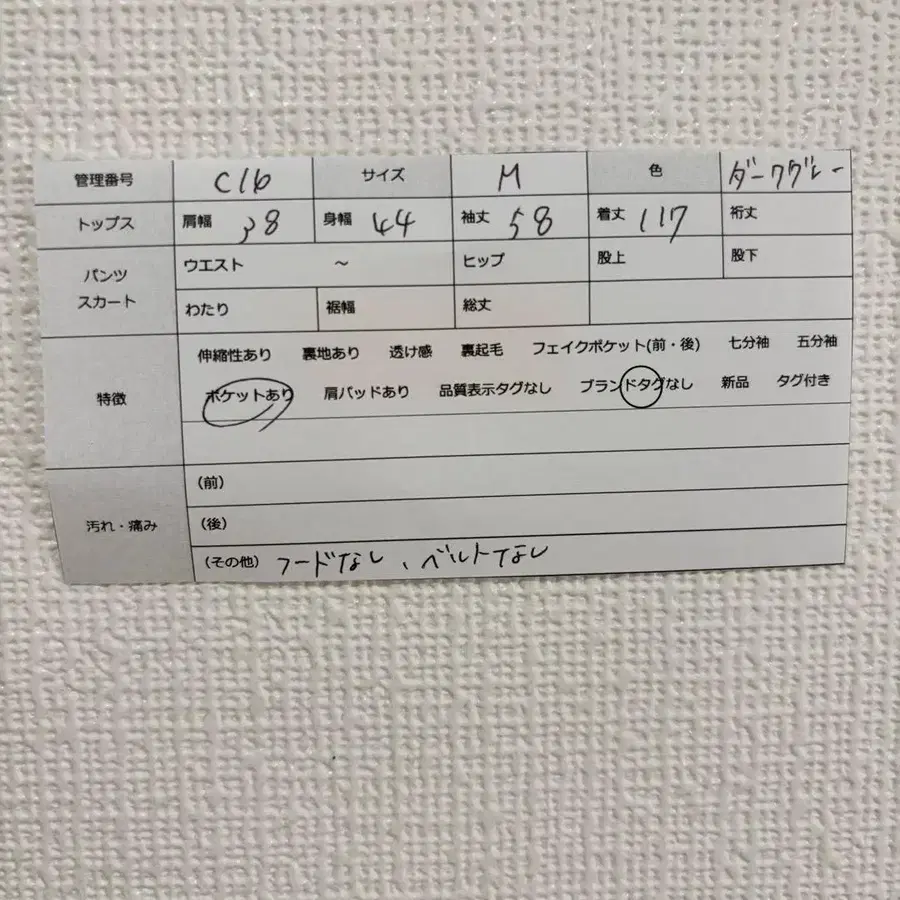 管理番号 C16 サイズ M 色 ダークグレー
トップス 肩幅 38 身幅 44 袖丈 58 着丈 117 裄丈
パンツ スカート ウエスト ～ ヒップ 股上 股下
わたり 裾幅 総丈
特徴 伸縮性あり 裏地あり 透け感 裏起毛 フェイクポケット(前・後) 七分袖 五分袖
ポケットあり 肩パッドあり 品質表示タグなし ブランドタグなし 新品 タグ付き
汚れ・痛み (前)
(後)
(その他) フードなし、ベルトなし